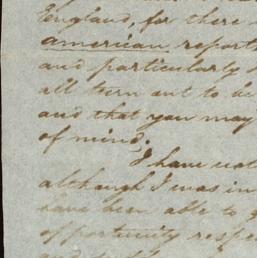 England, for there
american reports
and particularly
all turn out to be
and that you may
of mind.
I have not
although I was in
have been able to
opportunity
and